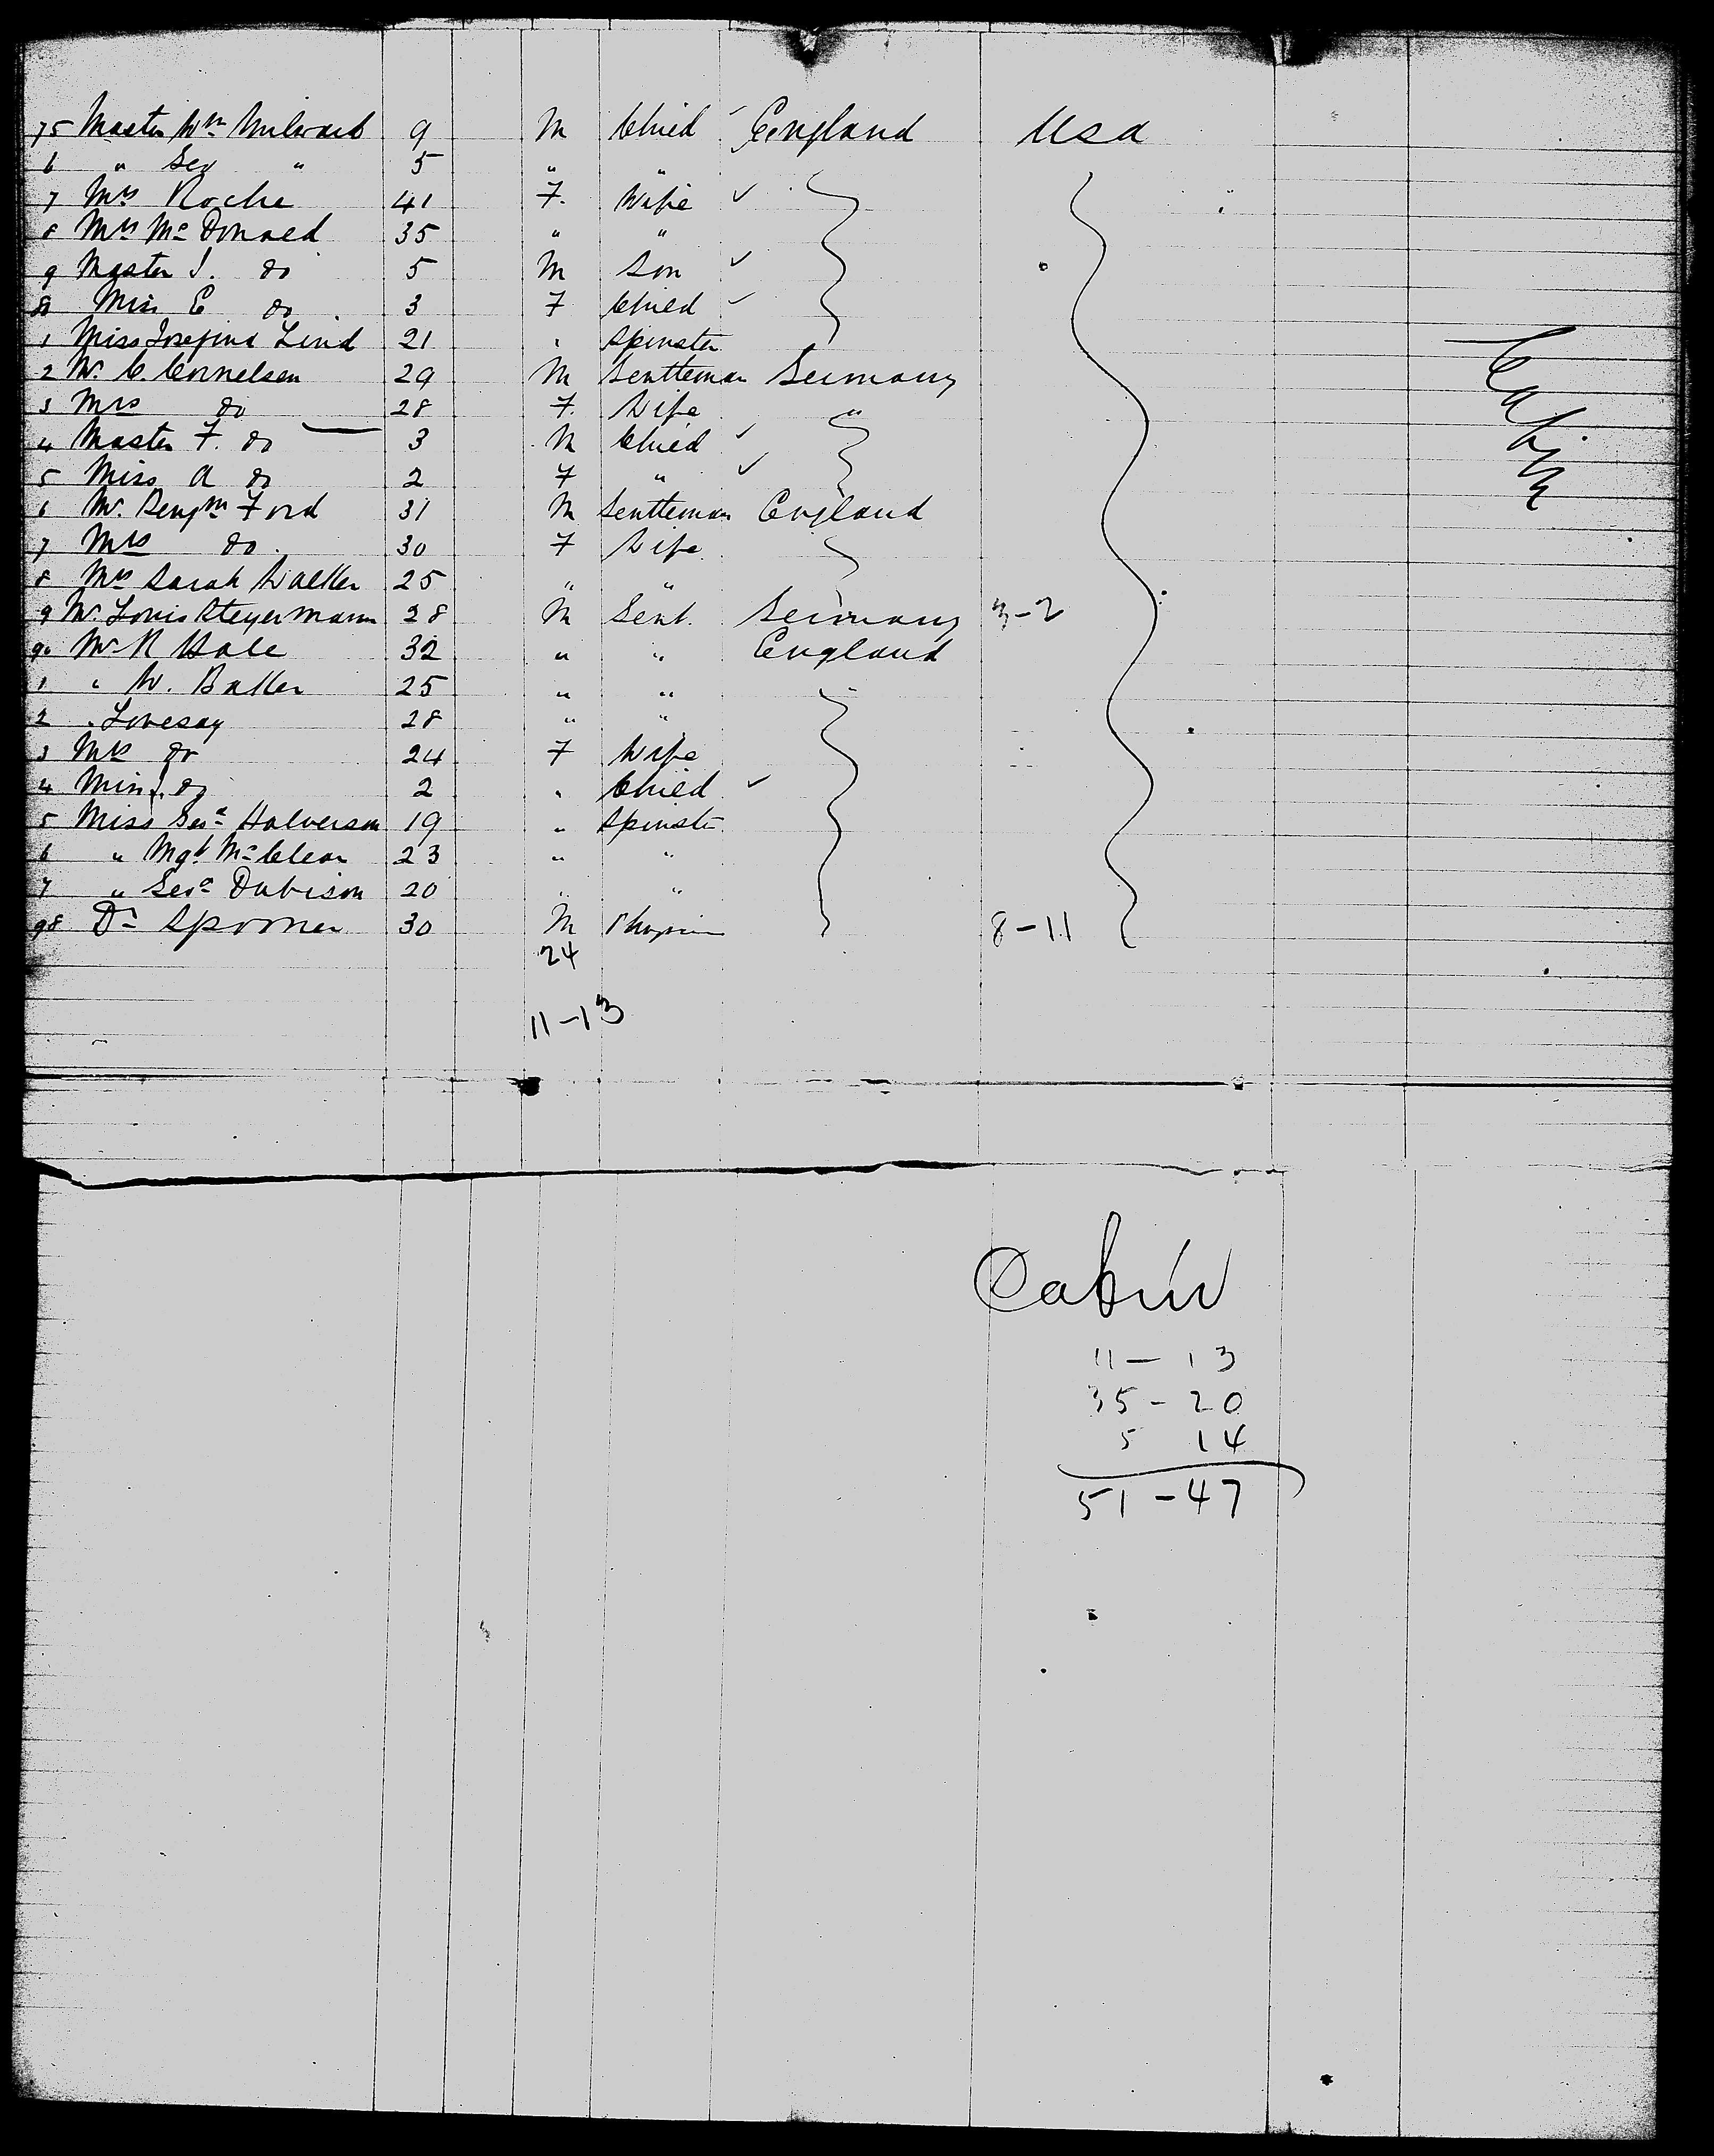 75 Master Wm Milward 9 M Child ✓ England Usa
6 " Geo " 5 " "
7 Mrs Roche 41 F. Wife ✓
8 Mrs Mc Donald 35 " "
9 Master J. do 5 M Son ✓
80 Miss E do 3 F Child ✓
1 Miss Josefina Lind 21 " Spinster
2 Mr. C. Cornelsen 29 M Gentleman Germany
3 Mrs do 28 F. Wife "
4 Master F. do 3 M Child ✓
5 Miss A do 2 F " ✓
6 Mr. Benjm Ford 31 M Gentleman England
7 Mrs do. 30 F Wife
8 Mrs Sarah Walker 25 " "
9 Mr. Louis Steyermann 28 M Gent. Germany 3-2
90 Mr R Hale 32 " " England
1 " W. Baller 25 " "
2 " Lovesay 28 " "
3 Mrs do 24 F Wife
4 Miss do 2 " Child ✓
5 Miss Halverson 19 " Spinster
6 " Mgt McClean 23 " "
7 " Dabison 20 " "
98 Dr Spooner 30 M 8-11
24
11-13
Cabin
Cabin
11 - 13
35 - 20
5 14
51 - 47